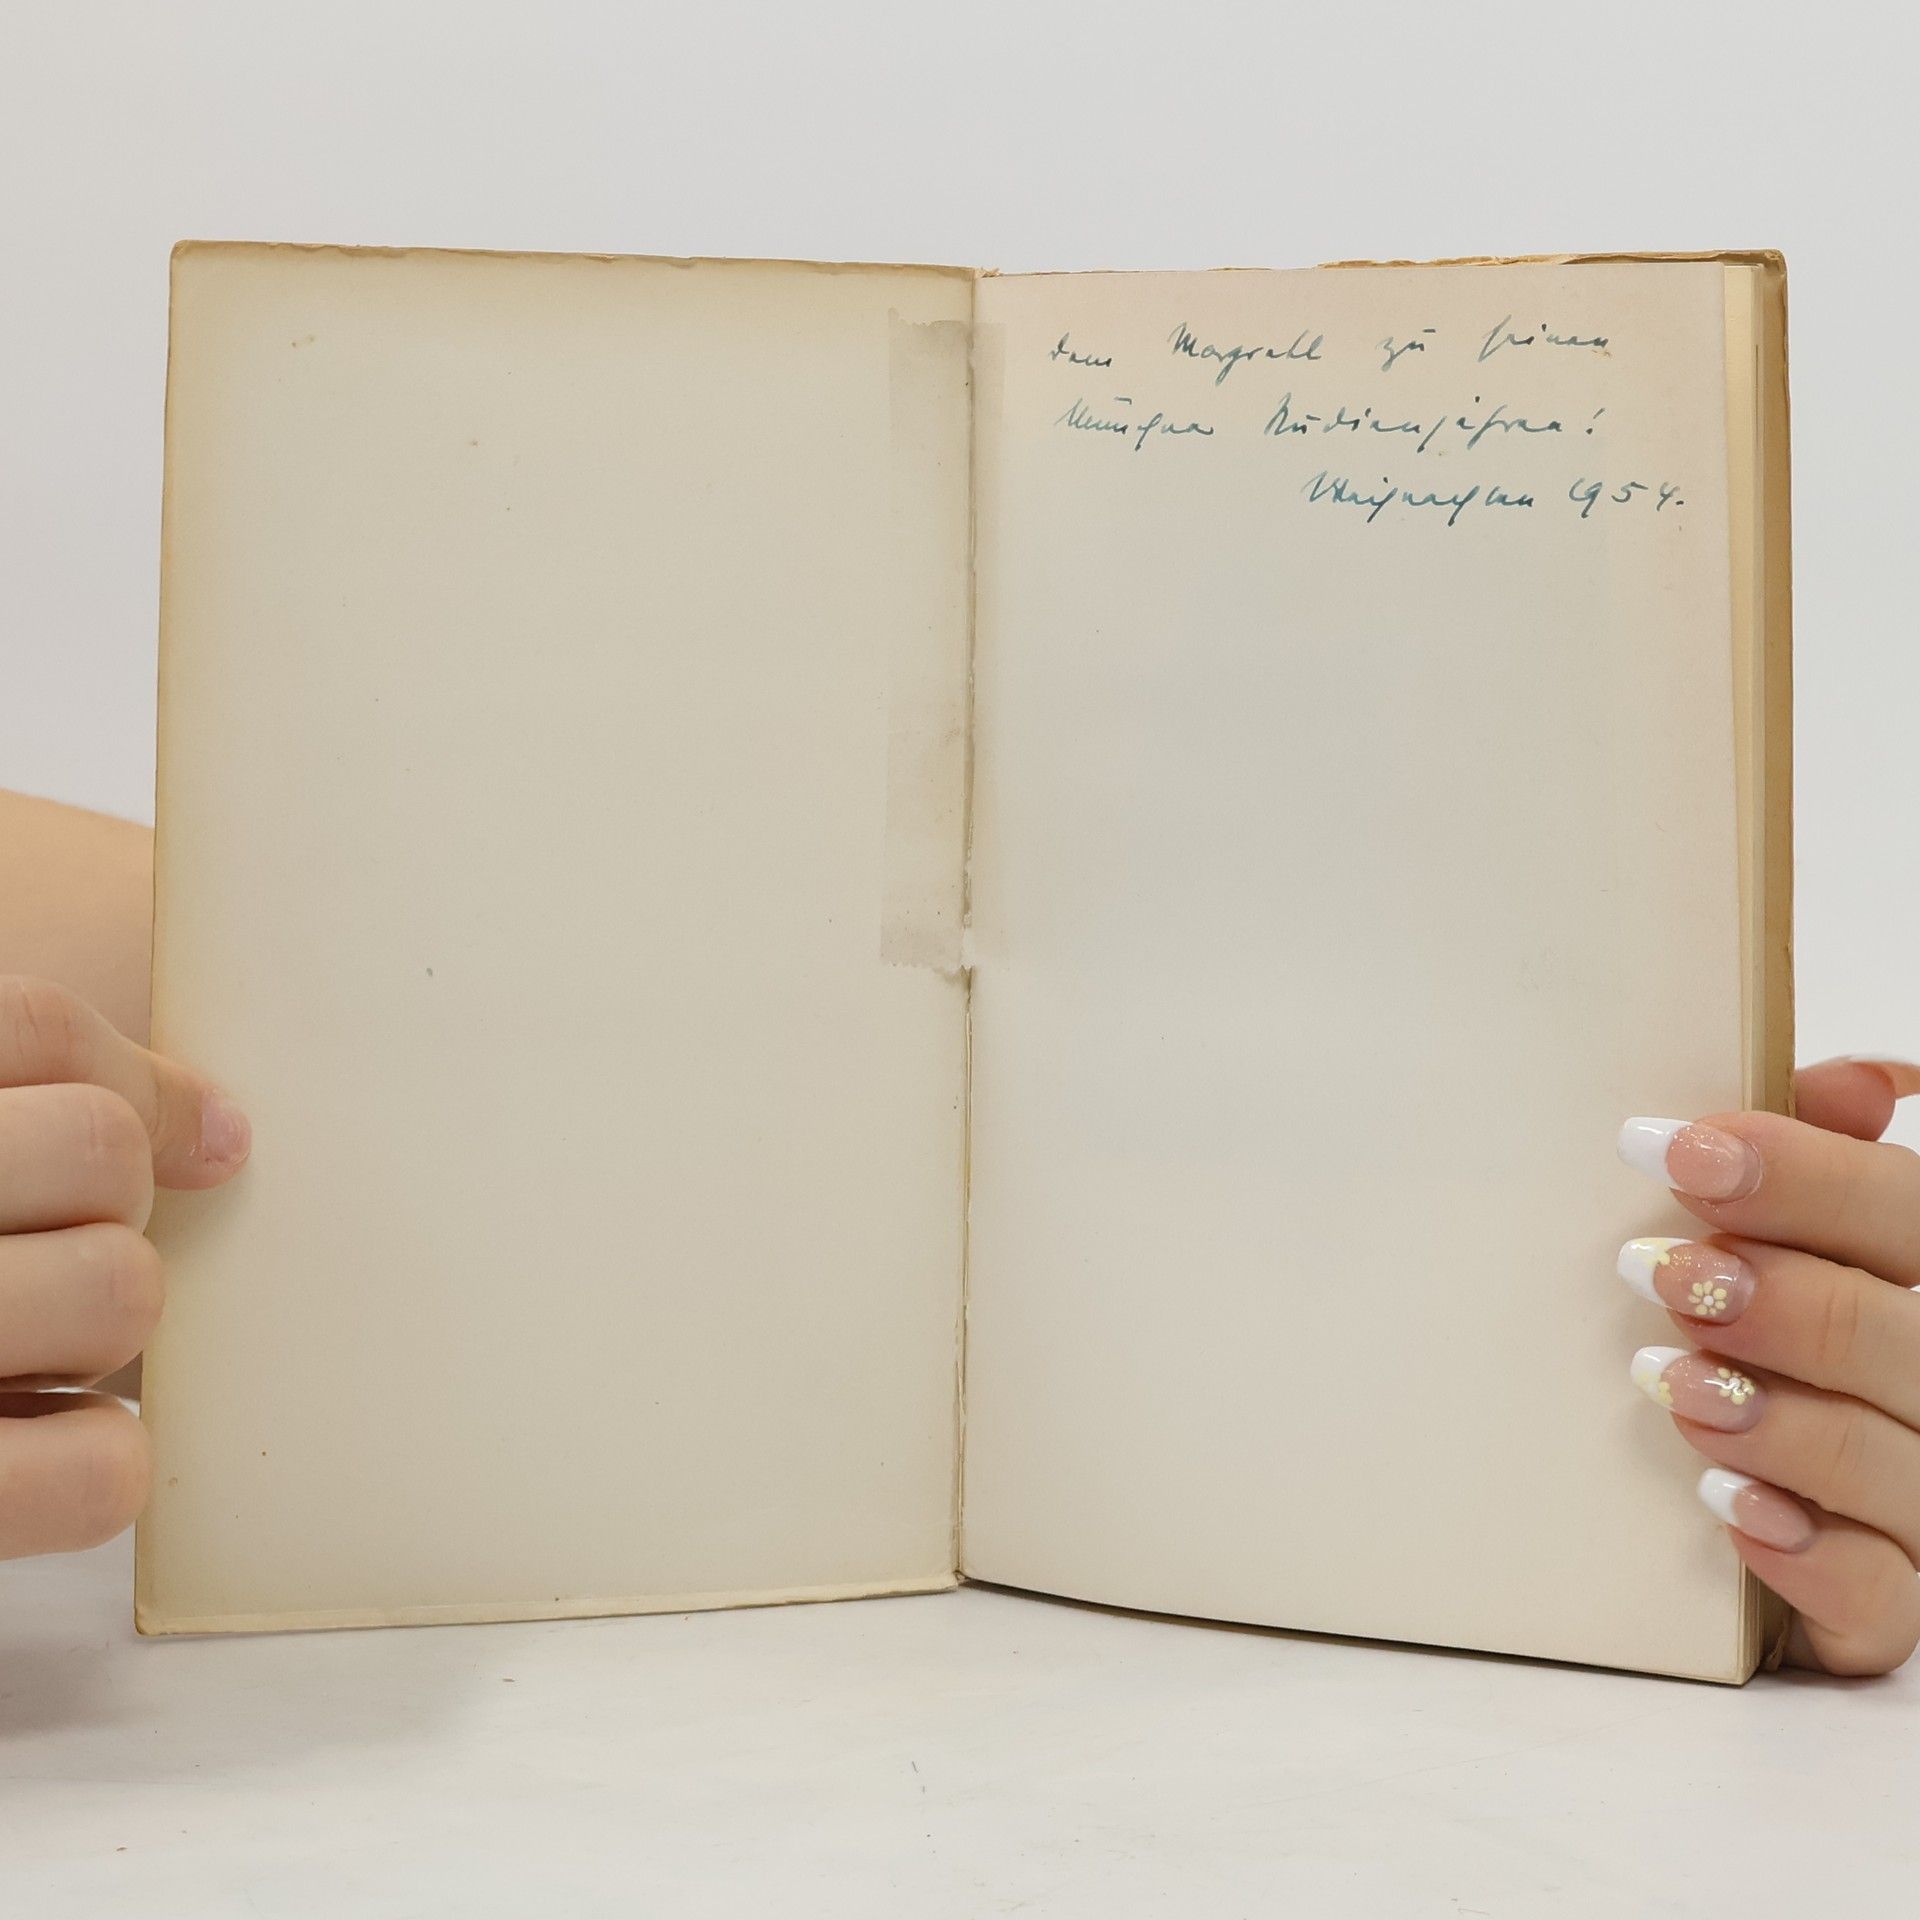 dem Margretl zu seinen
Münchner Studienjahren!
Weihnachten 1954.